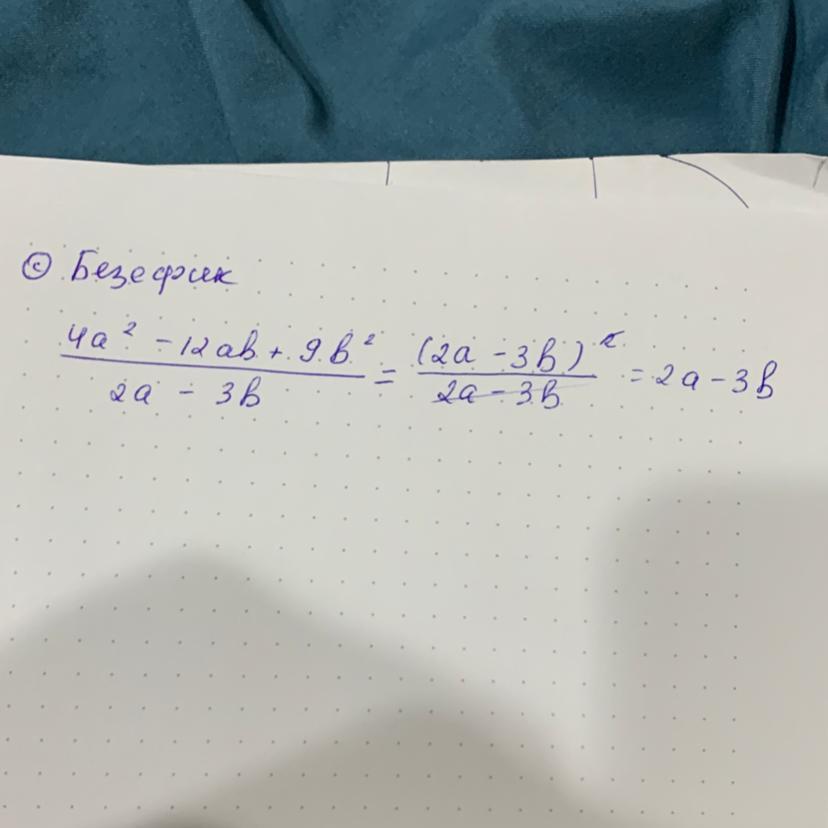 © Безефик
\frac{4a^2 - 12ab + 9b^2}{2a - 3b} = \frac{(2a - 3b)^2}{2a - 3b} = 2a - 3b